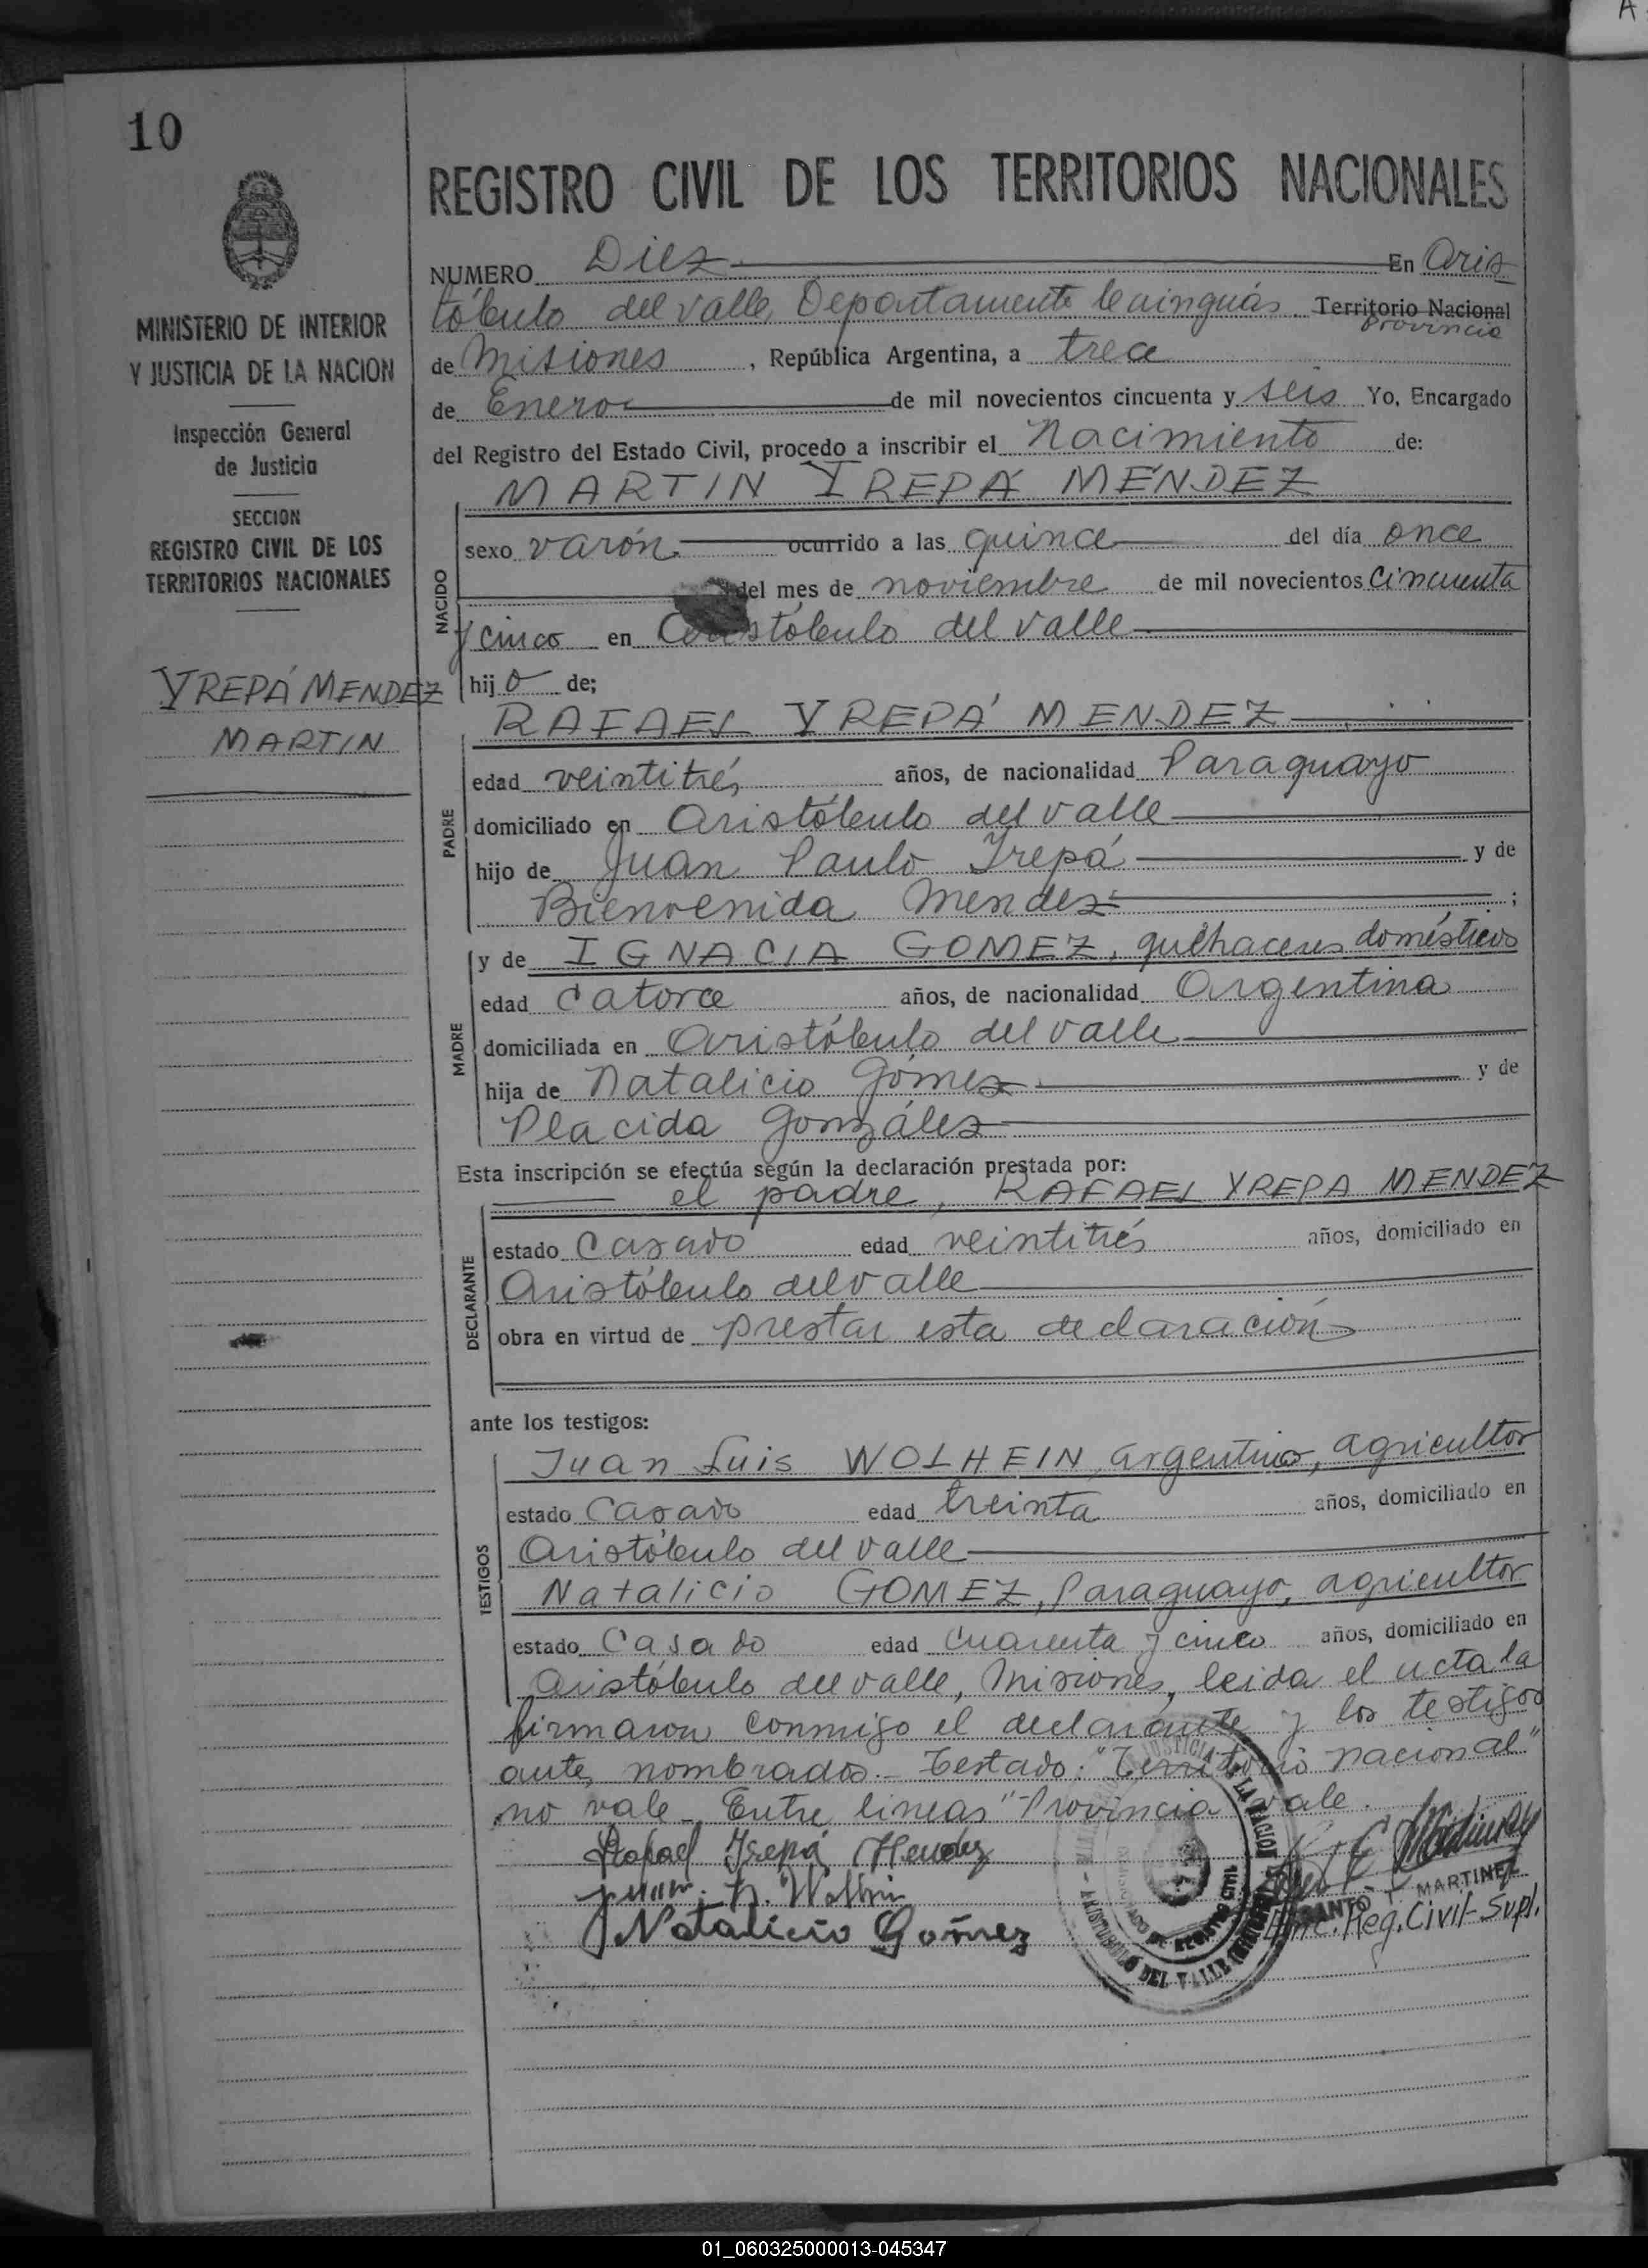 10
REGISTRO CIVIL DE LOS TERRITORIOS NACIONALES
MINISTERIO DE INTERIOR
Y JUSTICIA DE LA NACION
Inspección General
de Justicia
SECCION
REGISTRO CIVIL DE LOS
TERRITORIOS NACIONALES
YREPÁ MENDEZ
MARTIN
NUMERO Diez En Aris
tóbulo del valle, Departamento Cainguás Territorio Nacional
Provincia
de Misiones, República Argentina, a trece
de Enero de mil novecientos cincuenta y seis Yo, Encargado
del Registro del Estado Civil, procedo a inscribir el Nacimiento de:
MARTIN YREPÁ MÉNDEZ
NACIDO
sexo varón ocurrido a las quince del día once
del mes de noviembre de mil novecientos cincuenta
y cinco en Aristóbulo del valle
hijo de;
RAFAEL YREPÁ MENDEZ
PADRE
edad veintitrés años, de nacionalidad Paraguayo
domiciliado en Aristóbulo del valle
hijo de Juan Paulo Yrepá y de
Bienvenida Mendez;
MADRE
y de IGNACIA GOMEZ, quehaceres domésticos
edad catorce años, de nacionalidad Argentina
domiciliada en Aristóbulo del valle
hija de Natalicio Gómez y de
Placida Gonzáles
Esta inscripción se efectúa según la declaración prestada por:
el padre, RAFAEL YREPA MENDEZ
DECLARANTE
estado Casado edad veintitrés años, domiciliado en
Aristóbulo del valle
obra en virtud de prestar esta declaración
ante los testigos:
TESTIGOS
Juan Luis WOLHEIN, argentino, agricultor
estado Casado edad treinta años, domiciliado en
Aristóbulo del valle
Natalicio GOMEZ, Paraguayo, agricultor
estado Casado edad cuarenta y cinco años, domiciliado en
Aristóbulo del valle, Misiones, leida el acta la
firmaron conmigo el declarante y los testigos
antes nombrados.- Testado: "Territorio nacional"
no vale - Entre lineas "Provincia vale.
Rafael Yrepá Mendez
Natalicio Gomez
MARTINEZ
Enc. Reg. Civil- Supl.
ARISTOBULO DEL VALLE
REGISTRO CIVIL
01_060325000013-045347